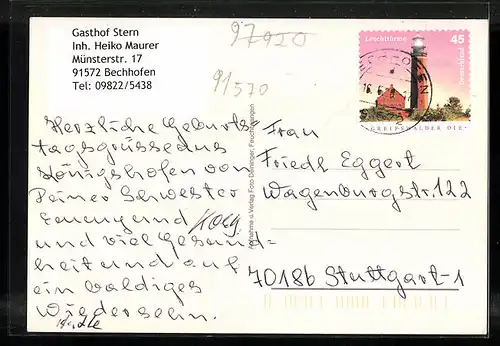 Gasthof Stern
Inh. Heiko Maurer
Münsterstr. 17
91572 Bechhofen
Tel: 09822/5438
97920
91570
Leuchttürme 45
Deutschland
GREIFSWALDER OIE
Herzliche Geburts-
tagsgrüsse aus
Königshofen von
Deiner Schwester
und viel Gesund=
heit und auf
ein baldiges
Wiedersehn.
Frau
Friedl Eggert
Wagenburgstr. 122
70186 Stuttgart-1
Aufnahme u. Verlag Foto